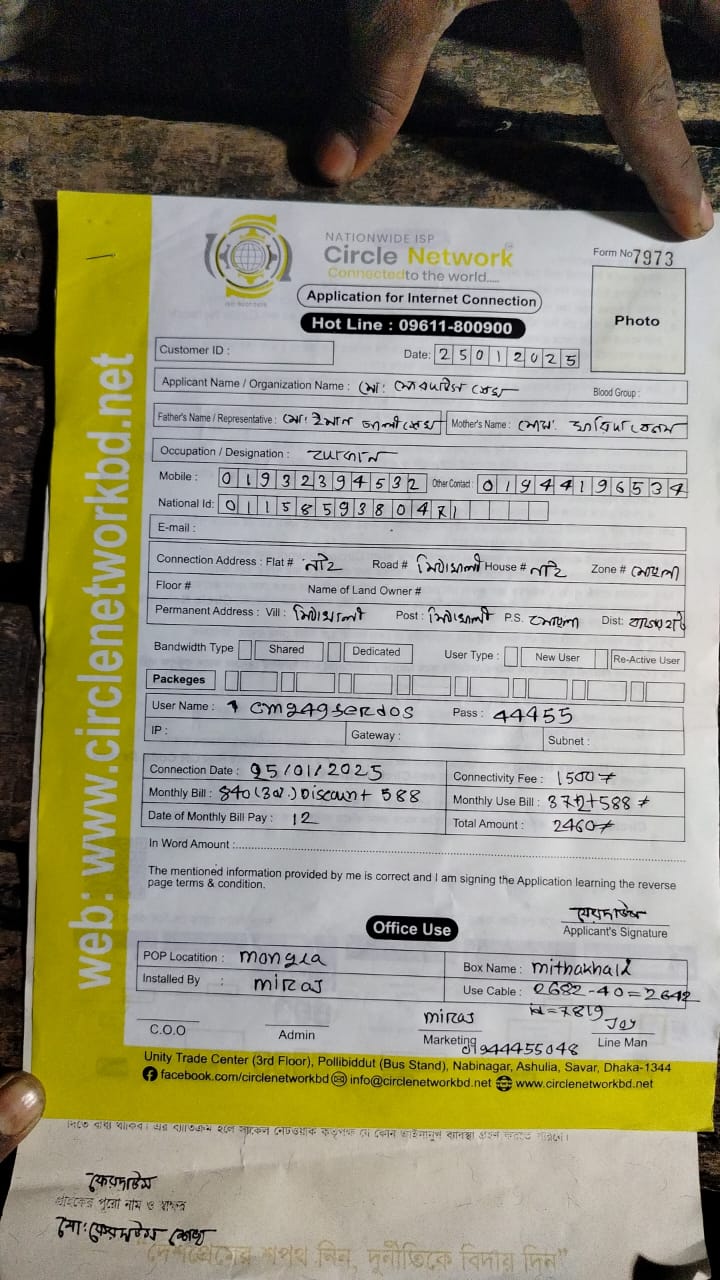 NATIONWIDE ISP
Circle Network
Connected to the world.....
Form No 7973
Application for Internet Connection
Hot Line : 09611-800900
Photo
Customer ID :
Date: 25012025
Applicant Name / Organization Name : মো: ফেরদাউস শেখ
Blood Group :
Father's Name / Representative : মো: ইমান আলী শেখ Mother's Name : মোসা:
Occupation / Designation :
Mobile : 01932394532 Other Contact : 01944196534
National Id: 0115859380471
E-mail :
Connection Address : Flat # নাই Road # মিঠাখালী House # নাই Zone # মোংলা
Floor # Name of Land Owner #
Permanent Address : Vill : মিঠাখালী Post : মিঠাখালী P.S. মোংলা Dist: বাগেরহাট
Bandwidth Type Shared Dedicated User Type : New User Re-Active User
Packeges
User Name : Pass : 44455
IP : Gateway : Subnet :
Connection Date : 25/01/2025 Connectivity Fee : 1500/
Monthly Bill : 840 Discount 588 Monthly Use Bill : 372+588/
Date of Monthly Bill Pay : 12 Total Amount : 2460/
In Word Amount :
The mentioned information provided by me is correct and I am signing the Application learning the reverse
page terms & condition.
ফেরদাউস
Applicant's Signature
Office Use
POP Locatition : mongla Box Name : mithakhali
Installed By : miraj Use Cable : 2682-40=2642
id=7819
miraj Joy
C.O.O Admin Marketing Line Man
01944455048
Unity Trade Center (3rd Floor), Pollibiddut (Bus Stand), Nabinagar, Ashulia, Savar, Dhaka-1344
facebook.com/circlenetworkbd info@circlenetworkbd.net www.circlenetworkbd.net
web: www.circlenetworkbd.net
দিতে বাধ্য থাকিব। এর ব্যতিক্রম হলে সার্কেল নেটওয়ার্ক কর্তৃপক্ষ যে কোন আইনানুগ ব্যবস্থা গ্রহণ করতে পারবে।
ফেরদাউস
গ্রাহকের পুরো নাম ও স্বাক্ষর
মো: ফেরদাউস শেখ
"দেশপ্রেমের শপথ নিন, দুর্নীতিকে বিদায় দিন"